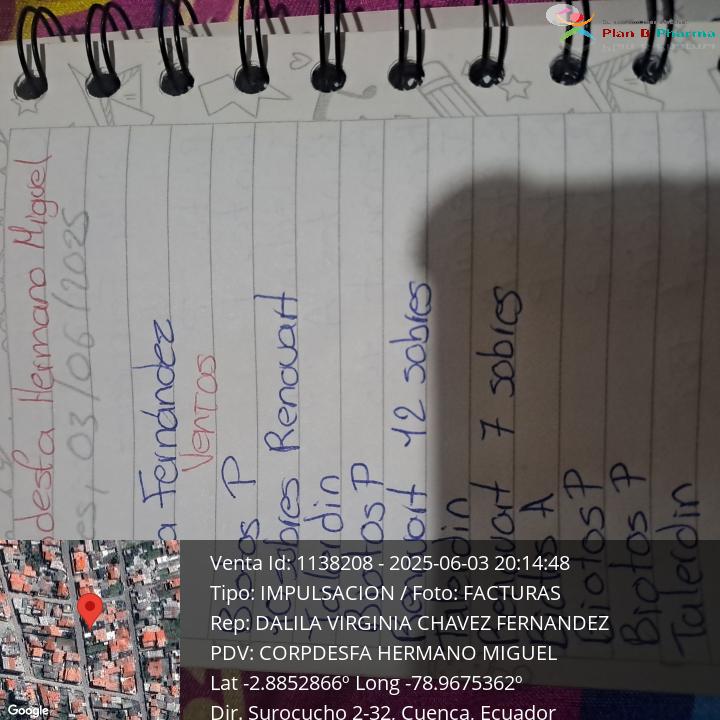 Plan B Pharma
desfa Hermano Miguel
es, 03/06/2025
a Fernández
Ventas
P
Sobres Renovart
Biotos P
Renovart 12 sobres
Renovart 7 sobres
A
Biotos P
Biotos P
Talerdin
Venta Id: 1138208 - 2025-06-03 20:14:48
Tipo: IMPULSACION / Foto: FACTURAS
Rep: DALILA VIRGINIA CHAVEZ FERNANDEZ
PDV: CORPDESFA HERMANO MIGUEL
Lat -2.8852866º Long -78.9675362º
Dir. Surocucho 2-32, Cuenca, Ecuador
Google